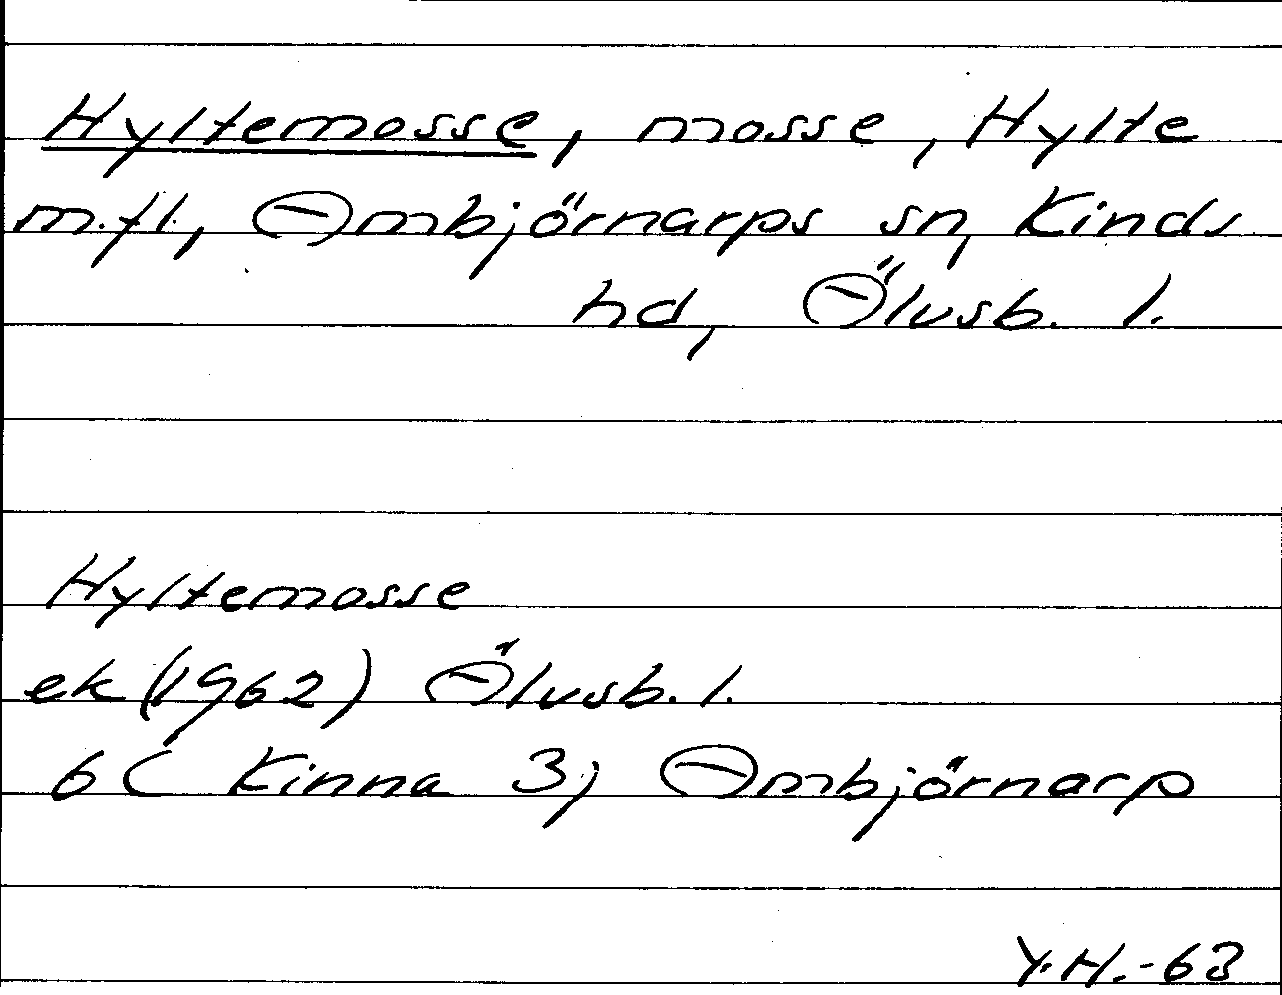 Hyltemosse, mosse, Hylte
m.fl., Ambjörnarps sn, Kinds
hd, Älvsb. l.
Hyltemosse
ek (1962) Älvsb. l.
6 C Kinna 3j Ambjörnarp
Y.H.-63